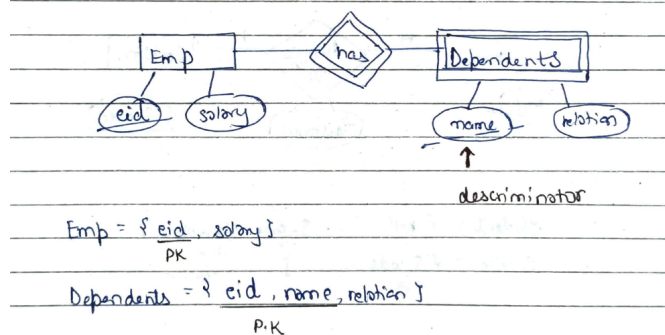 Emp has Dependents
eid salary name relation
↑
descriminator
Emp = { eid, salary }
PK
Dependents = { eid, name, relation }
P.K